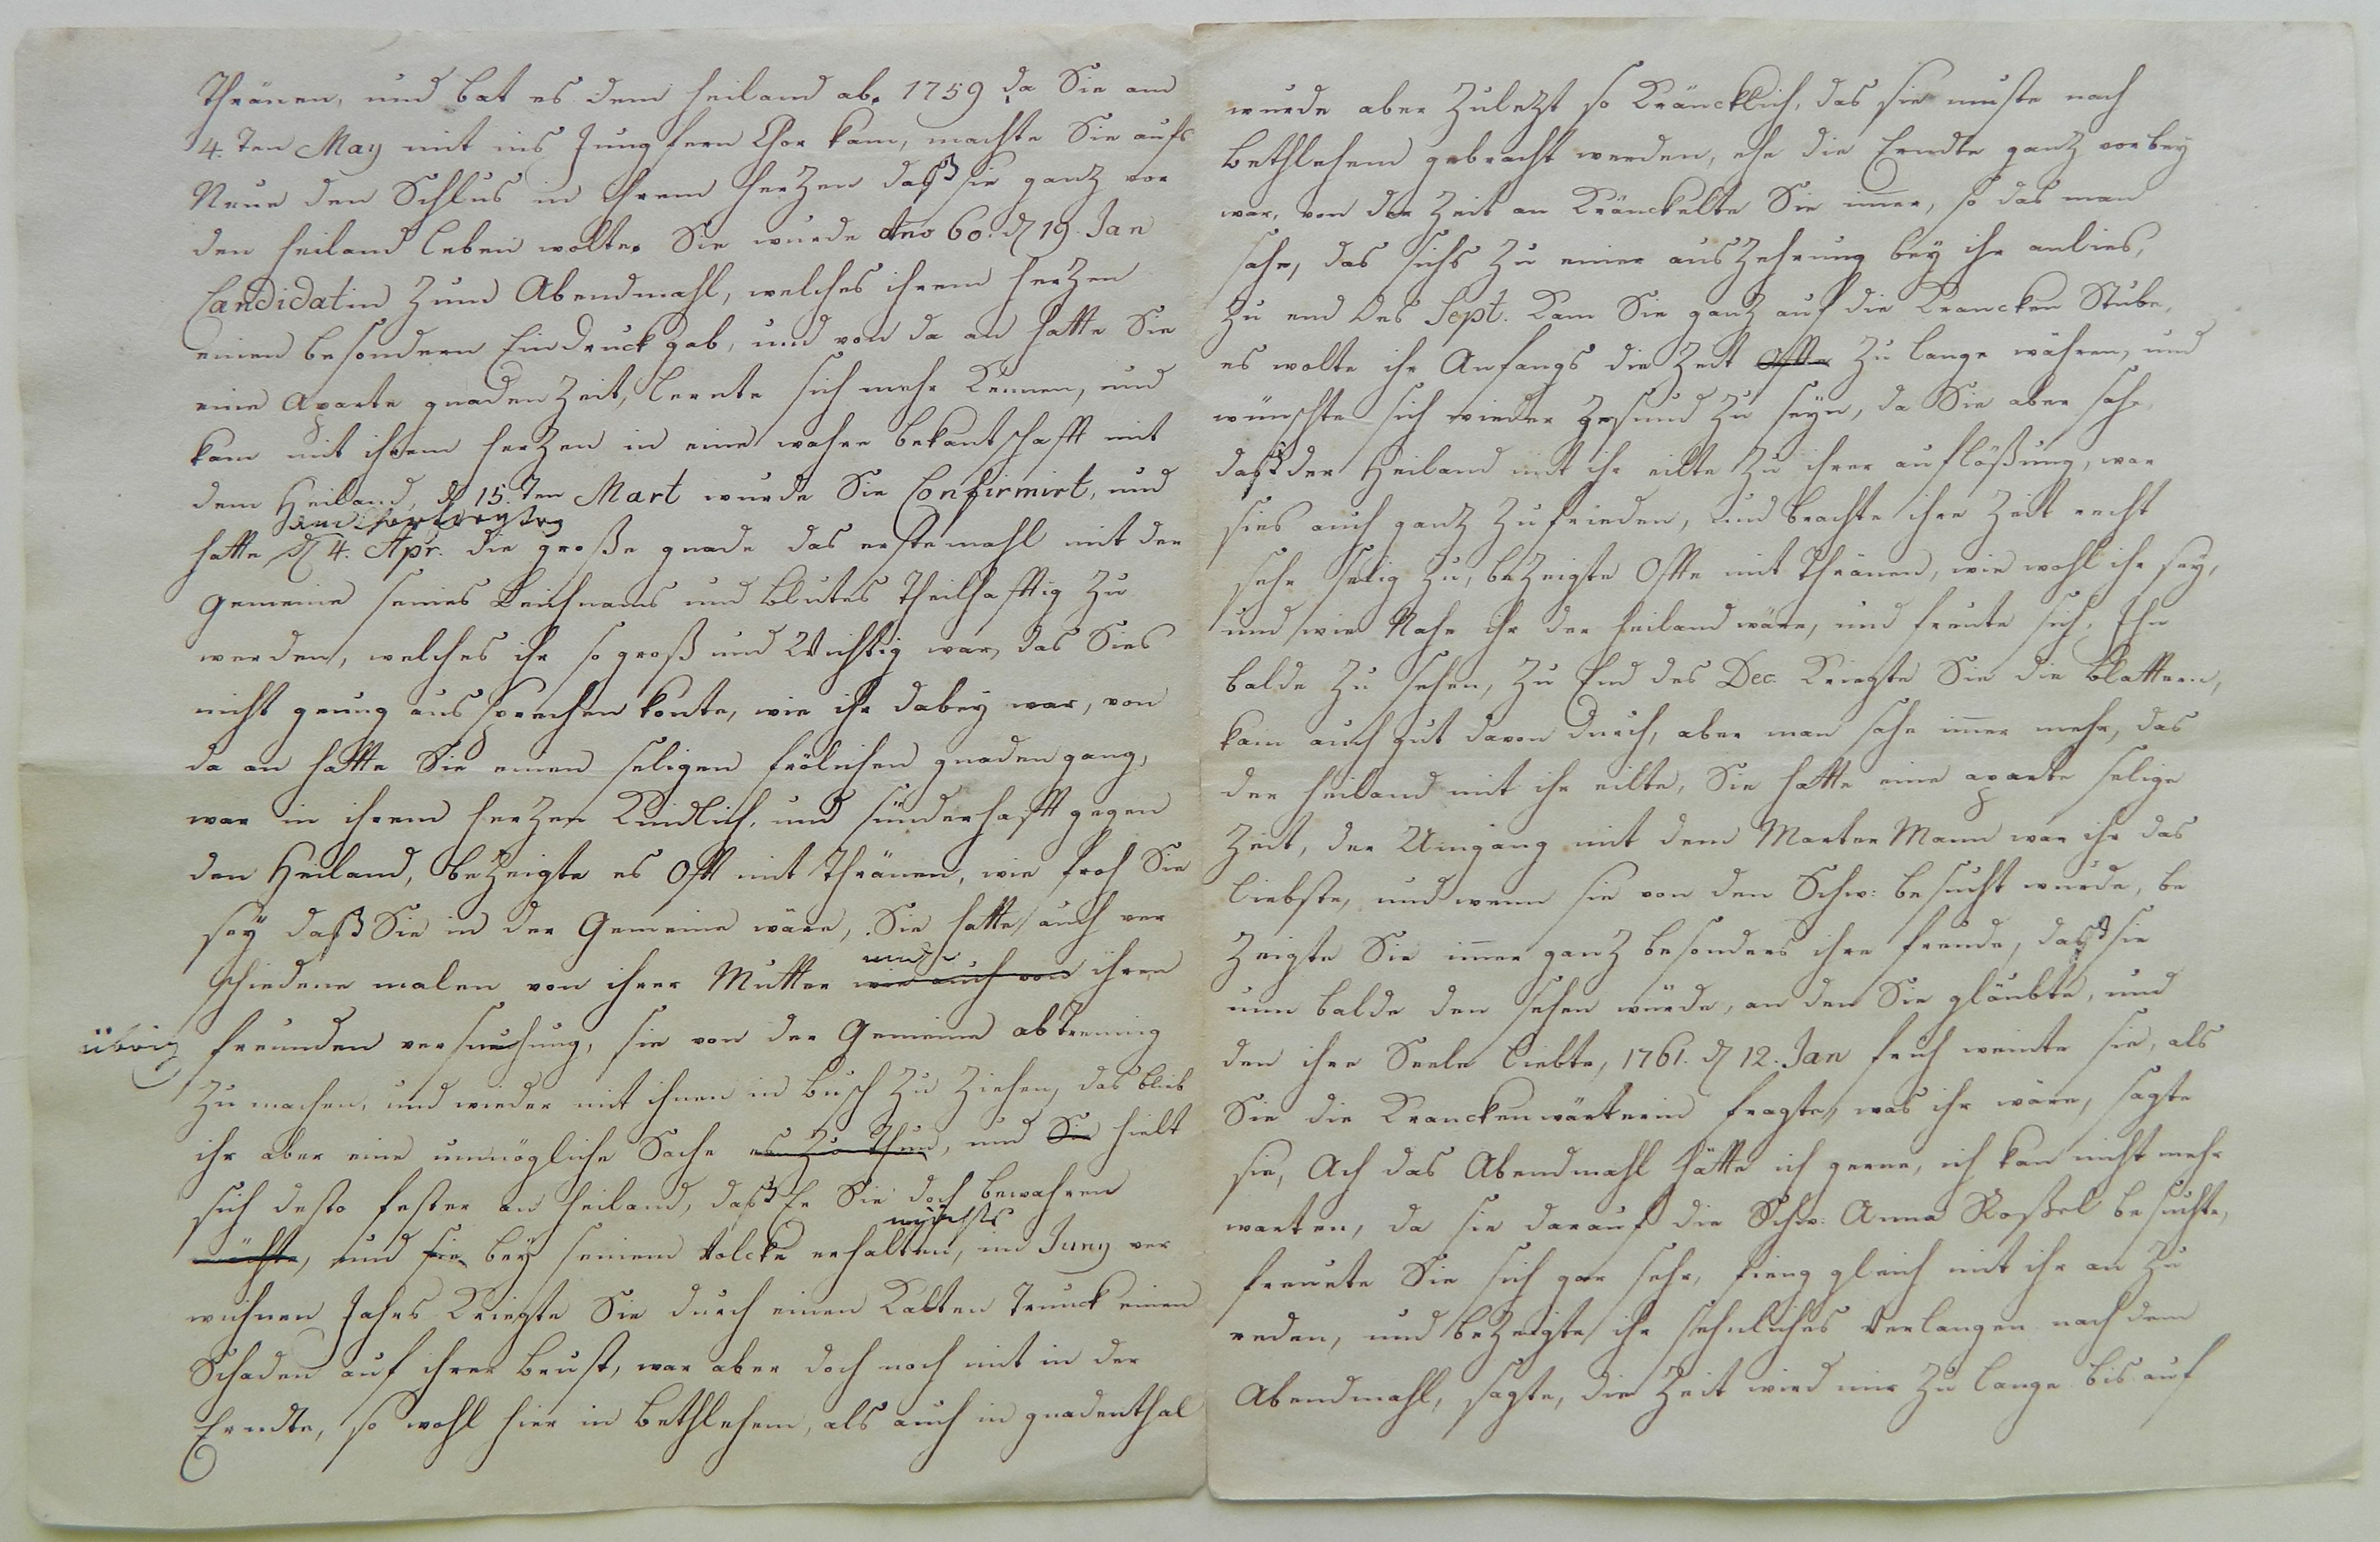 Thränen, und bat es dem Heiland ab. 1759 da Sie am
4.ten May mit ins Jungfern Chor kam, machte Sie aufs
Neue den Schlus in ihrem Herzen daß sie ganz vor
den Heiland leben wolte. Sie wurde Ano 60. d 19. Jan
Candidatin zum Abendmahl, welches ihrem Herzen
einen besondern Eindruck gab, und von da an hatte Sie
eine aparte gnaden Zeit, lernte sich mehr Kennen, und
kam mit ihrem Herzen in eine wahre bekantschafft mit
dem Heiland, d 15.ten Mart wurde Sie Confirmirt, und
hatte d 4. Apr. die große gnade das erstemahl mit der
Gemeine seines Leichnams und Blutes Theilhafftig zu
werden, welches ihr so groß und Wichtig war, das Sies
nicht genung aussprechen konte, wie ihr dabey war, von
da an hatte Sie einen seligen frölichen gnadengang,
war in ihrem Herzen Kindlich, und sünderhafft gegen
den Heiland, bezeigte es Offt mit Thränen, wie froh Sie
sey daß Sie in der Gemeine wäre, Sie hatte auch ver
und
schiedene malen von ihrer Mutter wie auch von ihren
übrig freunden versuchung, sie von der Gemeine abtrennig
zu machen, und wieder mit ihnen in Busch zu ziehen, das blieb
ihr aber eine unmögliche Sache es zu thun, und Sie hielt
sich desto fester an Heiland, daß Er Sie doch bewahren
möchte
möchte, und sie bey seinem Volcke erhalten, im Juny ver
wichnen Jahrs Kriegte Sie durch einen Kalten Trunck einen
Schaden auf ihrer Brust, war aber doch noch mit in der
Erndte, so wohl hier in Bethlehem, als auch in gnadenthal
wurde aber zulezt so Kräncklich, das sie muste nach
Bethlehem gebracht werden, ehe die Erndte ganz vorbey
war, von der Zeit an Kränckelte Sie imer, so das man
sahe, das sichs zu einer auszehrung bey ihr anlies,
zu end des Sept. Kam Sie ganz auf die Krancken Stube,
es wolte ihr Anfangs die Zeit Offte zu lange währen, und
wünschte sich wieder gesund zu seyn, da Sie aber sahe,
daß der Heiland mit ihr eilte zu ihrer auflößung, war
sies auch ganz zufrieden, und brachte ihre Zeit recht
sehr selig zu, bezeigte Offte mit Thränen, wie wohl ihr sey,
und wie Nahe ihr der Heiland wäre, und freute sich, Ihn
balde zu sehen, zu End des Dec. Kriegte Sie die Blattern,
kam auch gut davon durch, aber man sahe imer mehr, das
der Heiland mit ihr eilte, Sie hatte eine aparte selige
Zeit, der Umgang mit dem Marter Mann war ihr das
liebste, und wenn sie von den Schw: besucht wurde, be
zeigte Sie imer ganz besonders ihre freude, daß sie
nun balde den sehen würde, an den Sie gläubte, und
den ihre Seele liebte, 1761. d 12. Jan früh weinte sie, als
Sie die Kranckenwärterin fragte, was ihr wäre, sagte
sie, Ach das Abendmahl hätte ich gerne, ich kan nicht mehr
warten, da sie darauf die Schw: Anna Roßel besuchte,
freuete Sie sich gar sehr, fieng gleich mit ihr an zu
reden, und bezeigte ihr sehnliches Verlangen nach dem
Abendmahl, sagte, die Zeit wird mir zu lange bis auf